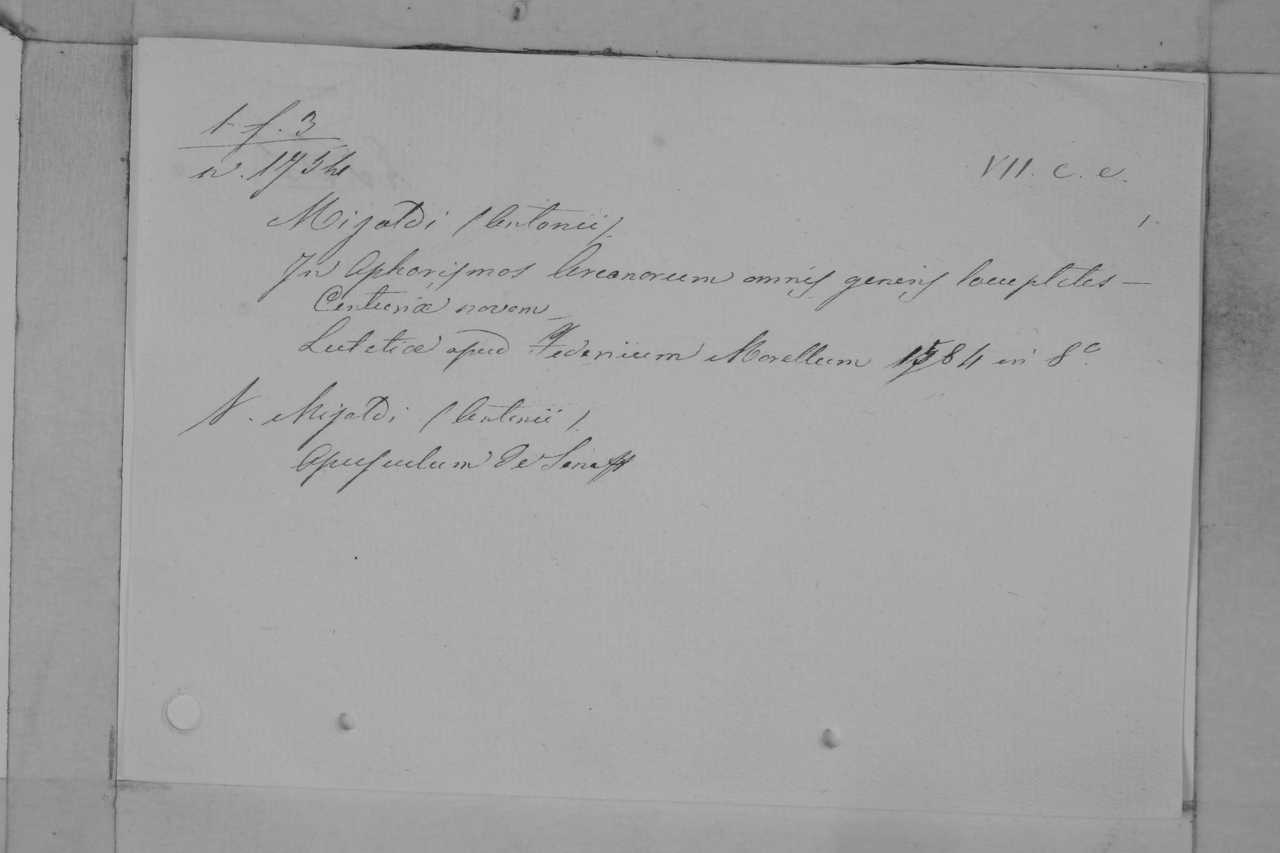 1. f. 3
n. 1754
VII. c. c.
1.
Mizaldi (Antonii).
In Aphorismos Arcanorum omnis generis locupletes —
Centuriæ novem
Lutetiæ apud Federicum Morellum 1584 in 8°.
N. Mizaldi (Antonii).
Opusculum de Sena